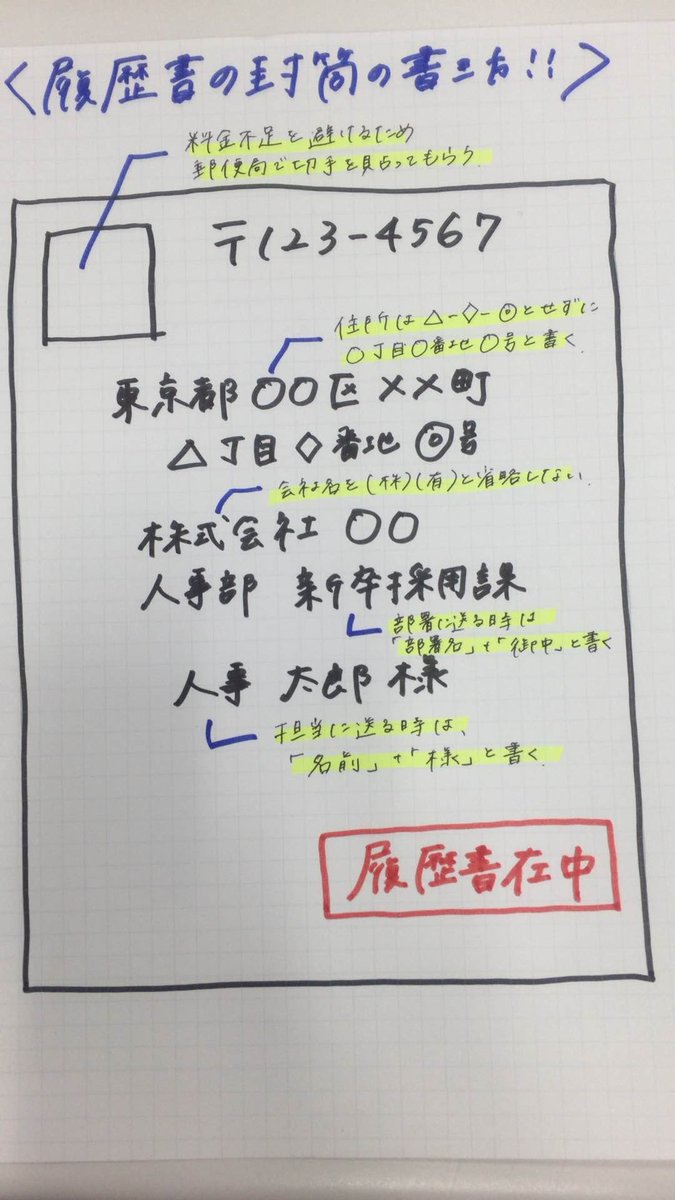 <履歴書の封筒の書き方!!>
料金不足を避けるため
郵便局で切手を貼ってもらう
〒123-4567
住所は△-◇-◎とせずに
〇丁目〇番地〇号と書く
東京都〇〇区××町
△丁目◇番地◎号
会社名を(株)(有)と省略しない
株式会社 〇〇
人事部 新卒採用課
部署に送る時は
「部署名」+「御中」と書く
人事 太郎 様
担当に送る時は、
「名前」+「様」と書く
履歴書在中